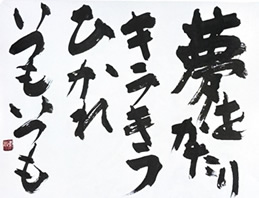 夢をかたり
キラキラ
ひかれ
いつもいつも